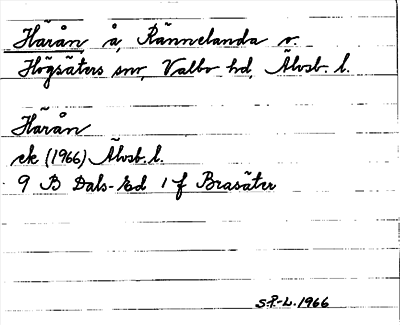 Härån, å, Rännelanda o.
Högsäters snr, Valbo hd, Älvsb. l.
Härån
ek (1966) Älvsb. l.
9 B Dals-Ed 1 f Brasäter
S.P.-L. 1966